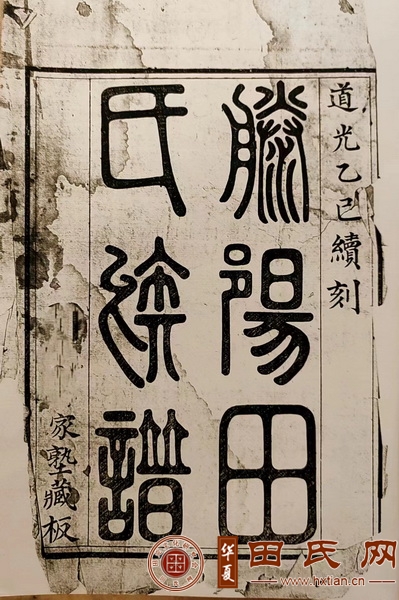 道光乙巳續刻
滕陽田
氏族譜
家塾藏板
華夏
田氏网
www.hxtian.cn